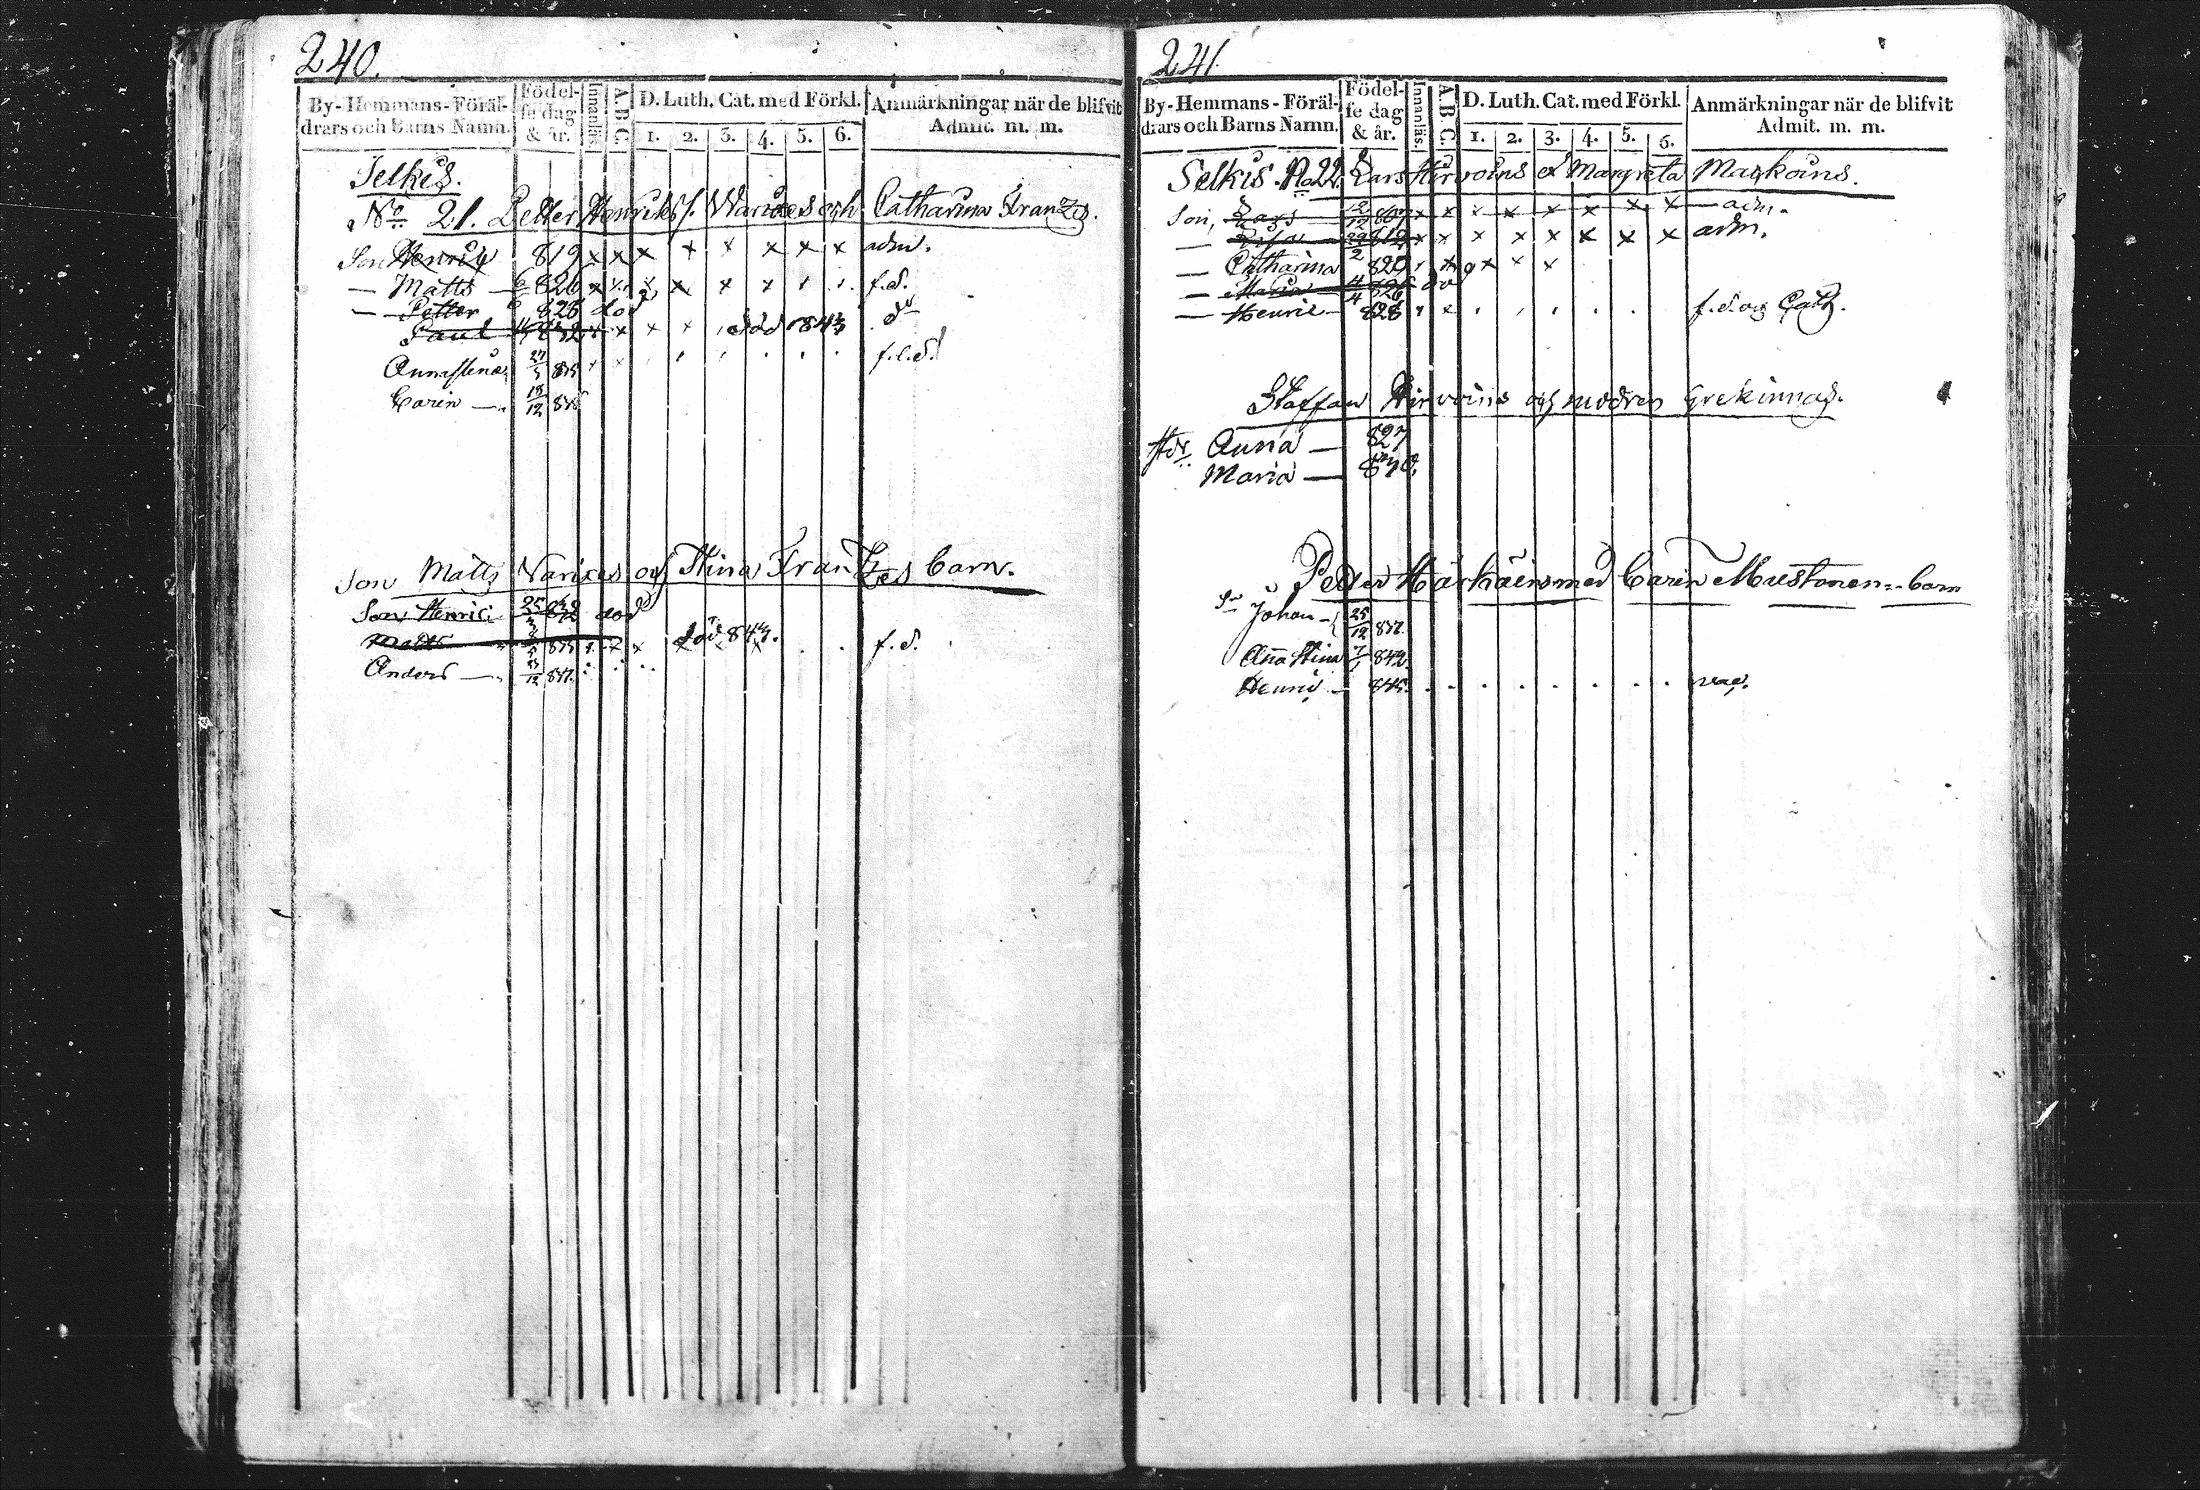 240.
By-Hemmans-Föräl-
drars och Barns Namn.
Födel-
se dag
& år.
Innanläs.
A.B.C.
D. Luth. Cat. med Förkl.
1. 2. 3. 4. 5. 6.
Anmärkningar när de blifvit
Admit. m. m.
Selkis.
No 21. Petter Henrikss. Warixes och Catharina Franzes.
Son Henric 819 x x x x x x x x adm.
— Matts 826 x x x x x f. d.
— Petter 828 död
Paul 832 x x x död 1843
Anna Stina 27/5 835 x x f. e. d.
Carin — 18/12 838
Son Matts Varixes och Stina Frantzes barn.
Son Henric 25 832 död
Matts 835 x x död 843. f. d.
Anders — 13/12 837.
241.
By-Hemmans-Föräl-
drars och Barns Namn.
Födel-
se dag
& år.
Innanläs.
A.B.C.
D. Luth. Cat. med Förkl.
1. 2. 3. 4. 5. 6.
Anmärkningar när de blifvit
Admit. m. m.
Selkis. No 22. Lars Hirvoins et Margreta
Son, Lars 12/12 807 x x x x x x x x — adm.
— Lisa 812 x x x x x x x x adm.
— Catharina 820 x x x x
— Maria 4/4 826 död
— Henric — 828 f. d. og Cath.
Staffan Hirvoins och modren Grekinnas.
Anna — 827
Maria — 830.
Petter Härkäins med Carin Mustonen barn
Johan — 25/12 837.
Anna Stina 7/1 842
Henric — 845. vac.